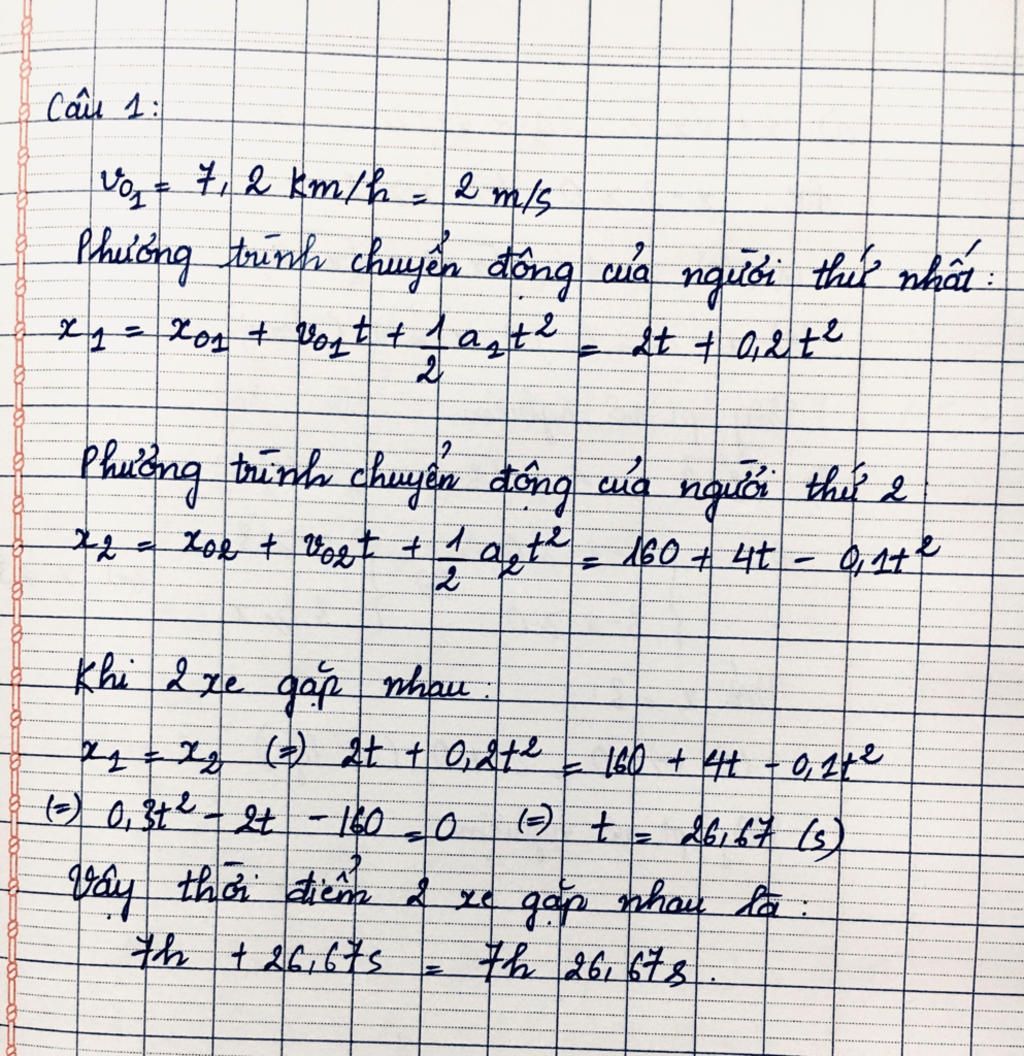 Câu 1:
v₀₁ = 7,2 km/h = 2 m/s
Phương trình chuyển động của người thứ nhất:
x₁ = x₀₁ + v₀₁t + 1/2 a₁t² = 2t + 0,2t²
Phương trình chuyển động của người thứ 2
x₂ = x₀₂ + v₀₂t + 1/2 a₂t² = 160 + 4t - 0,1t²
Khi 2 xe gặp nhau:
x₁ = x₂ (=) 2t + 0,2t² = 160 + 4t - 0,1t²
(=) 0,3t² - 2t - 160 = 0 (=) t = 26,67 (s)
Vậy thời điểm 2 xe gặp nhau là:
7h + 26,67s = 7h 26,67s.